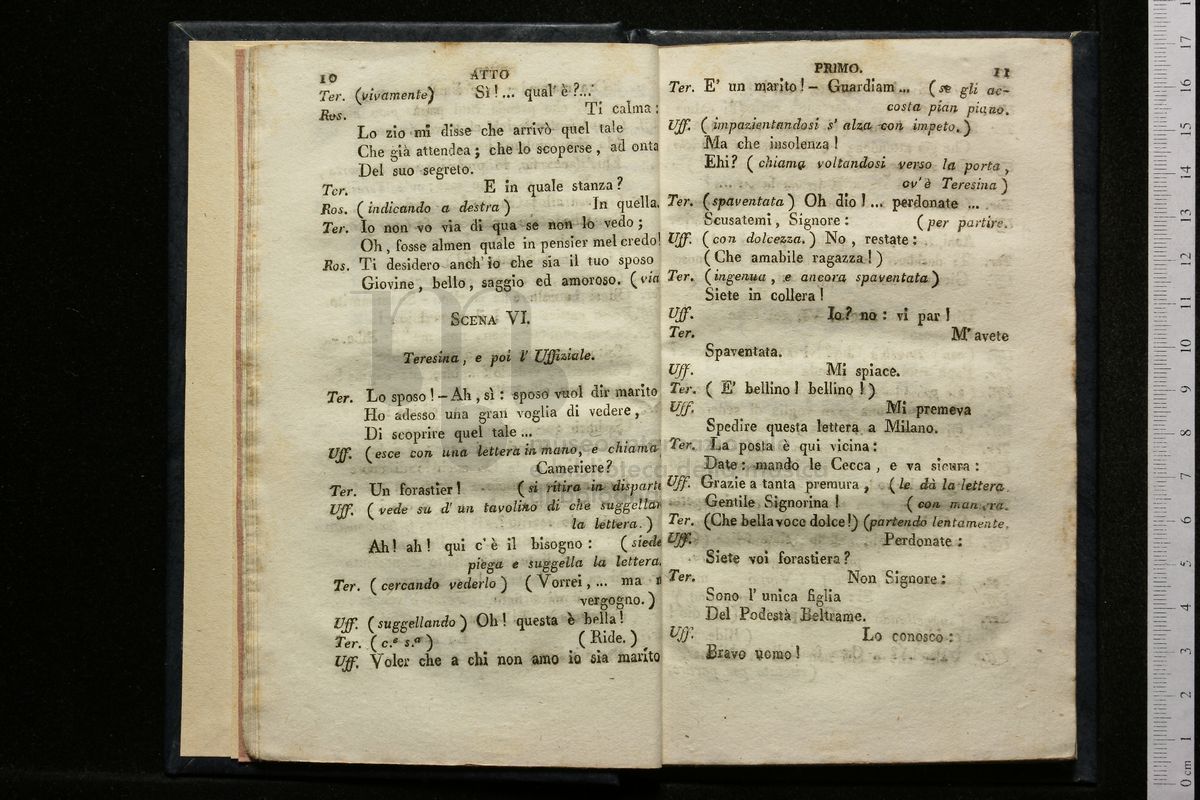 10 ATTO
Ter. (vivamente) Sì!... qual' è?...
Ros. Ti calma:
Lo zio mi disse che arrivò quel tale
Che già attendea; che lo scoperse, ad onta
Del suo segreto.
Ter. E in quale stanza?
Ros. (indicando a destra) In quella.
Ter. Io non vo via di qua se non lo vedo;
Oh, fosse almen quale in pensier mel credo!
Ros. Ti desidero anch' io che sia il tuo sposo
Giovine, bello, saggio ed amoroso. (via
SCENA VI.
Teresina, e poi l' Uffiziale.
Ter. Lo sposo! — Ah, sì: sposo vuol dir marito
Ho adesso una gran voglia di vedere,
Di scoprire quel tale...
Uff. (esce con una lettera in mano, e chiama
Cameriere?
Ter. Un forastier! (si ritira in disparte
Uff. (vede su d' un tavolino di che suggellar
la lettera.)
Ah! ah! qui c' è il bisogno: (siede
piega e suggella la lettera.
Ter. (cercando vederlo) (Vorrei, ... ma
vergogno.)
Uff. (suggellando) Oh! questa è bella!
Ter. (c.e s.a) (Ride.)
Uff. Voler che a chi non amo io sia marito
PRIMO. 11
Ter. E' un marito! — Guardiam... (se gli ac-
costa pian piano.
Uff. (impazientandosi s' alza con impeto.)
Ma che insolenza!
Ehi? (chiama voltandosi verso la porta,
ov' è Teresina)
Ter. (spaventata) Oh dio!... perdonate ...
Scusatemi, Signore: (per partire.
Uff. (con dolcezza.) No, restate:
(Che amabile ragazza!)
Ter. (ingenua, e ancora spaventata)
Siete in collera!
Uff. Io? no: vi par!
Ter. M' avete
Spaventata.
Uff. Mi spiace.
Ter. (E' bellino! bellino!)
Uff. Mi premeva
Spedire questa lettera a Milano.
Ter. La posta è qui vicina:
Date: mando le Cecca, e va sicura:
Uff. Grazie a tanta premura, (le dà la lettera.
Gentile Signorina! (con maniera.
Ter. (Che bella voce dolce!) (partendo lentamente.
Uff. Perdonate:
Siete voi forastiera?
Ter. Non Signore:
Sono l' unica figlia
Del Podestà Beltrame.
Uff. Lo conosco:
Bravo uomo!